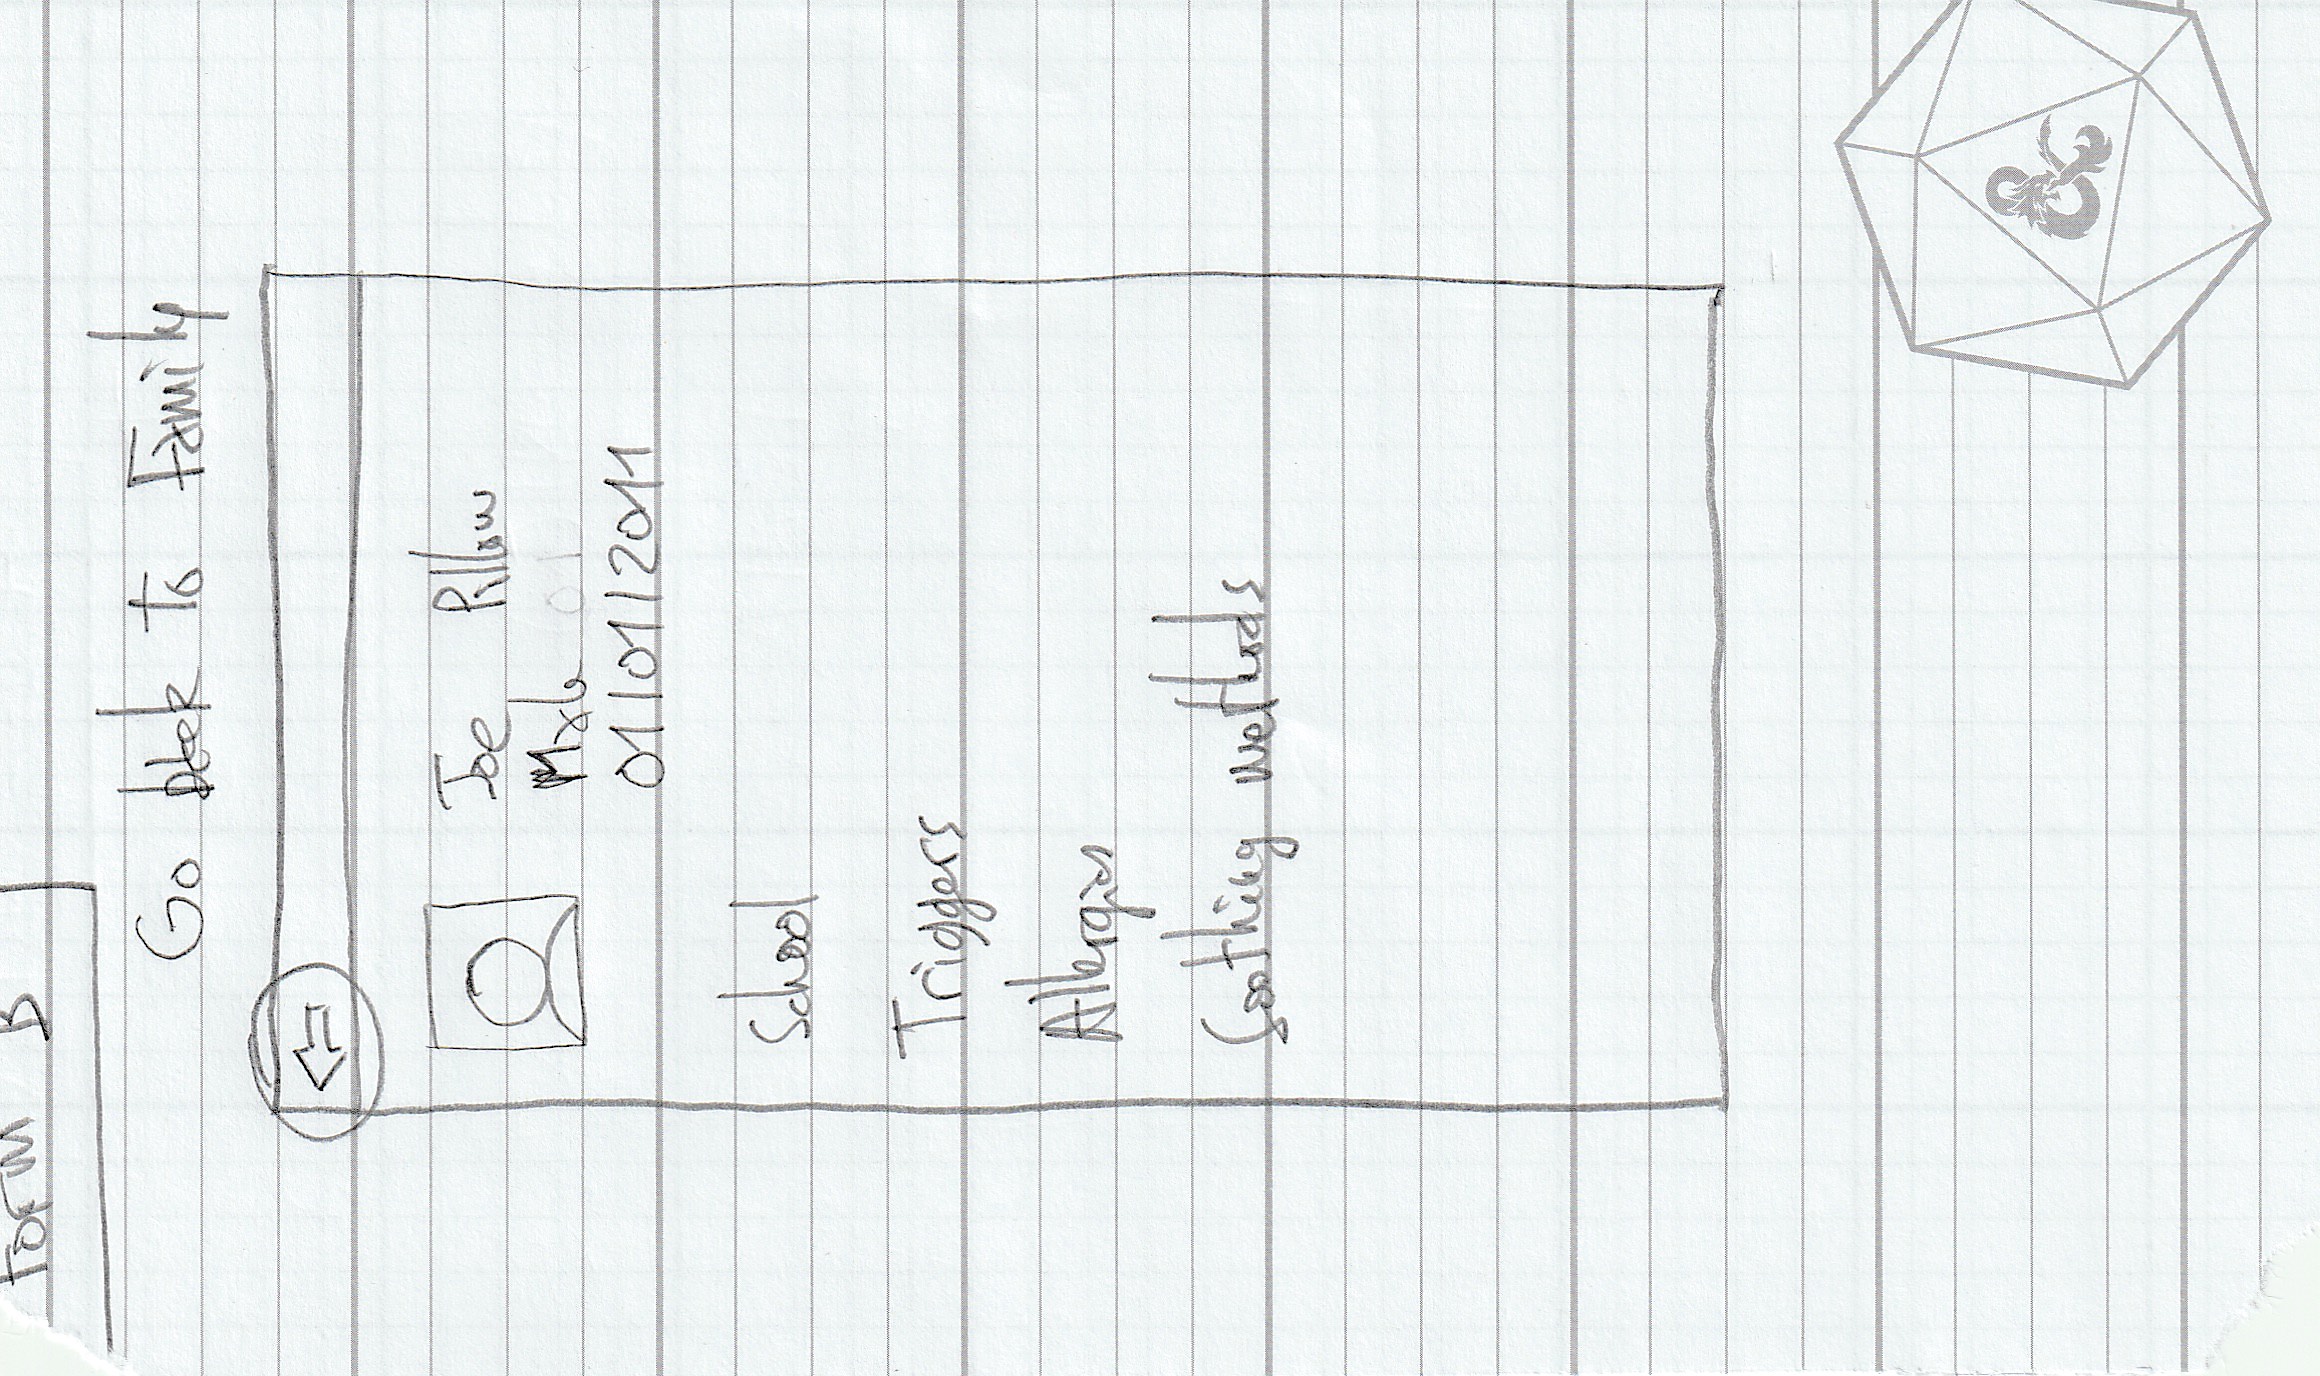 Form B
Go back to Family
Joe Pillow
Male
01/01/2011
School
Triggers
Allergies
Soothing methods